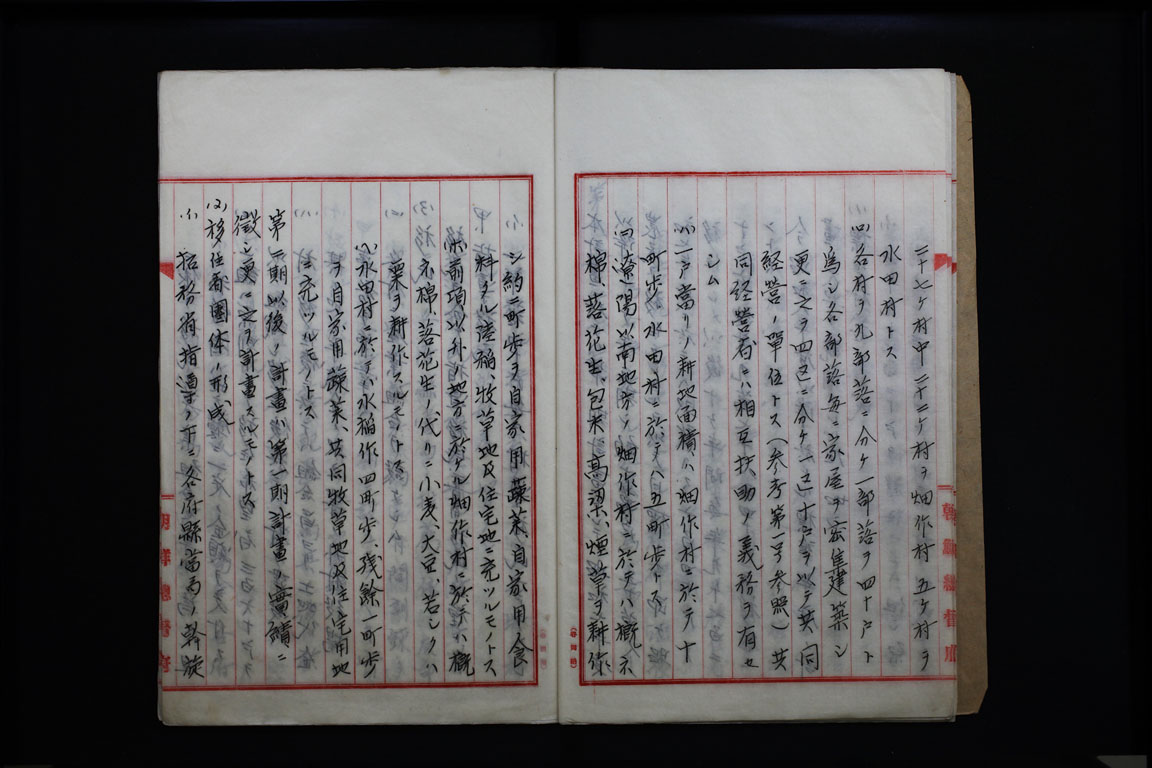 二十七ケ村中二十二ケ村ヲ畑作村五ケ村ヲ
水田村トス
(ロ)各村ヲ九部落ニ分ケ一部落ヲ四十戸ト
為シ各部落毎ニ家屋ヲ密集建築シ
更ニ之ヲ四区ニ分ケ一区十戸ヲ以テ共同
経営ノ單位トス(参考第一号参照)共
同経営者ニハ相互扶助ノ義務ヲ有セ
シム
(ハ)一戸當リノ耕地面積ハ畑作村ニ於テ十
町歩水田村ニ於テハ五町歩トス
(ニ)遼陽以南地方ノ畑作村ニ於テハ概ネ
棉、落花生、包米、高梁、煙草ヲ耕作
シ約二町歩ヲ自家用蔬菜、自家用食
料タル陸稲、牧草地及住宅地ニ充ツルモノトス
(ホ)前項以外ノ地方ニ於ケル畑作村ニ於テハ概
ネ棉、落花生ノ代リニ小麦、大豆、若シクハ
粟ヲ耕作スルモノトス
(ヘ)水田村ニ於テハ水稲作四町歩、残餘一町歩
ヲ自家用蔬菜、共同牧草地及住宅用地
ニ充ツルモノトス
第二期以後ノ計畫ハ第一期計畫ノ實績ニ
徴シ更ニ之ヲ計畫スルモノトス
(2)移住者團体ノ形成
(イ)拓務省指導ノ下ニ各府縣當局斡旋
朝鮮總督府
朝鮮總督府